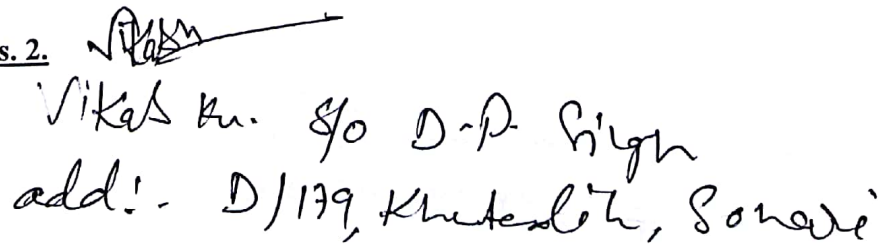 s. 2. Vikash
Vikas Kr. S/o D.P. Singh
add:- D/179, Khutadih, Sonari